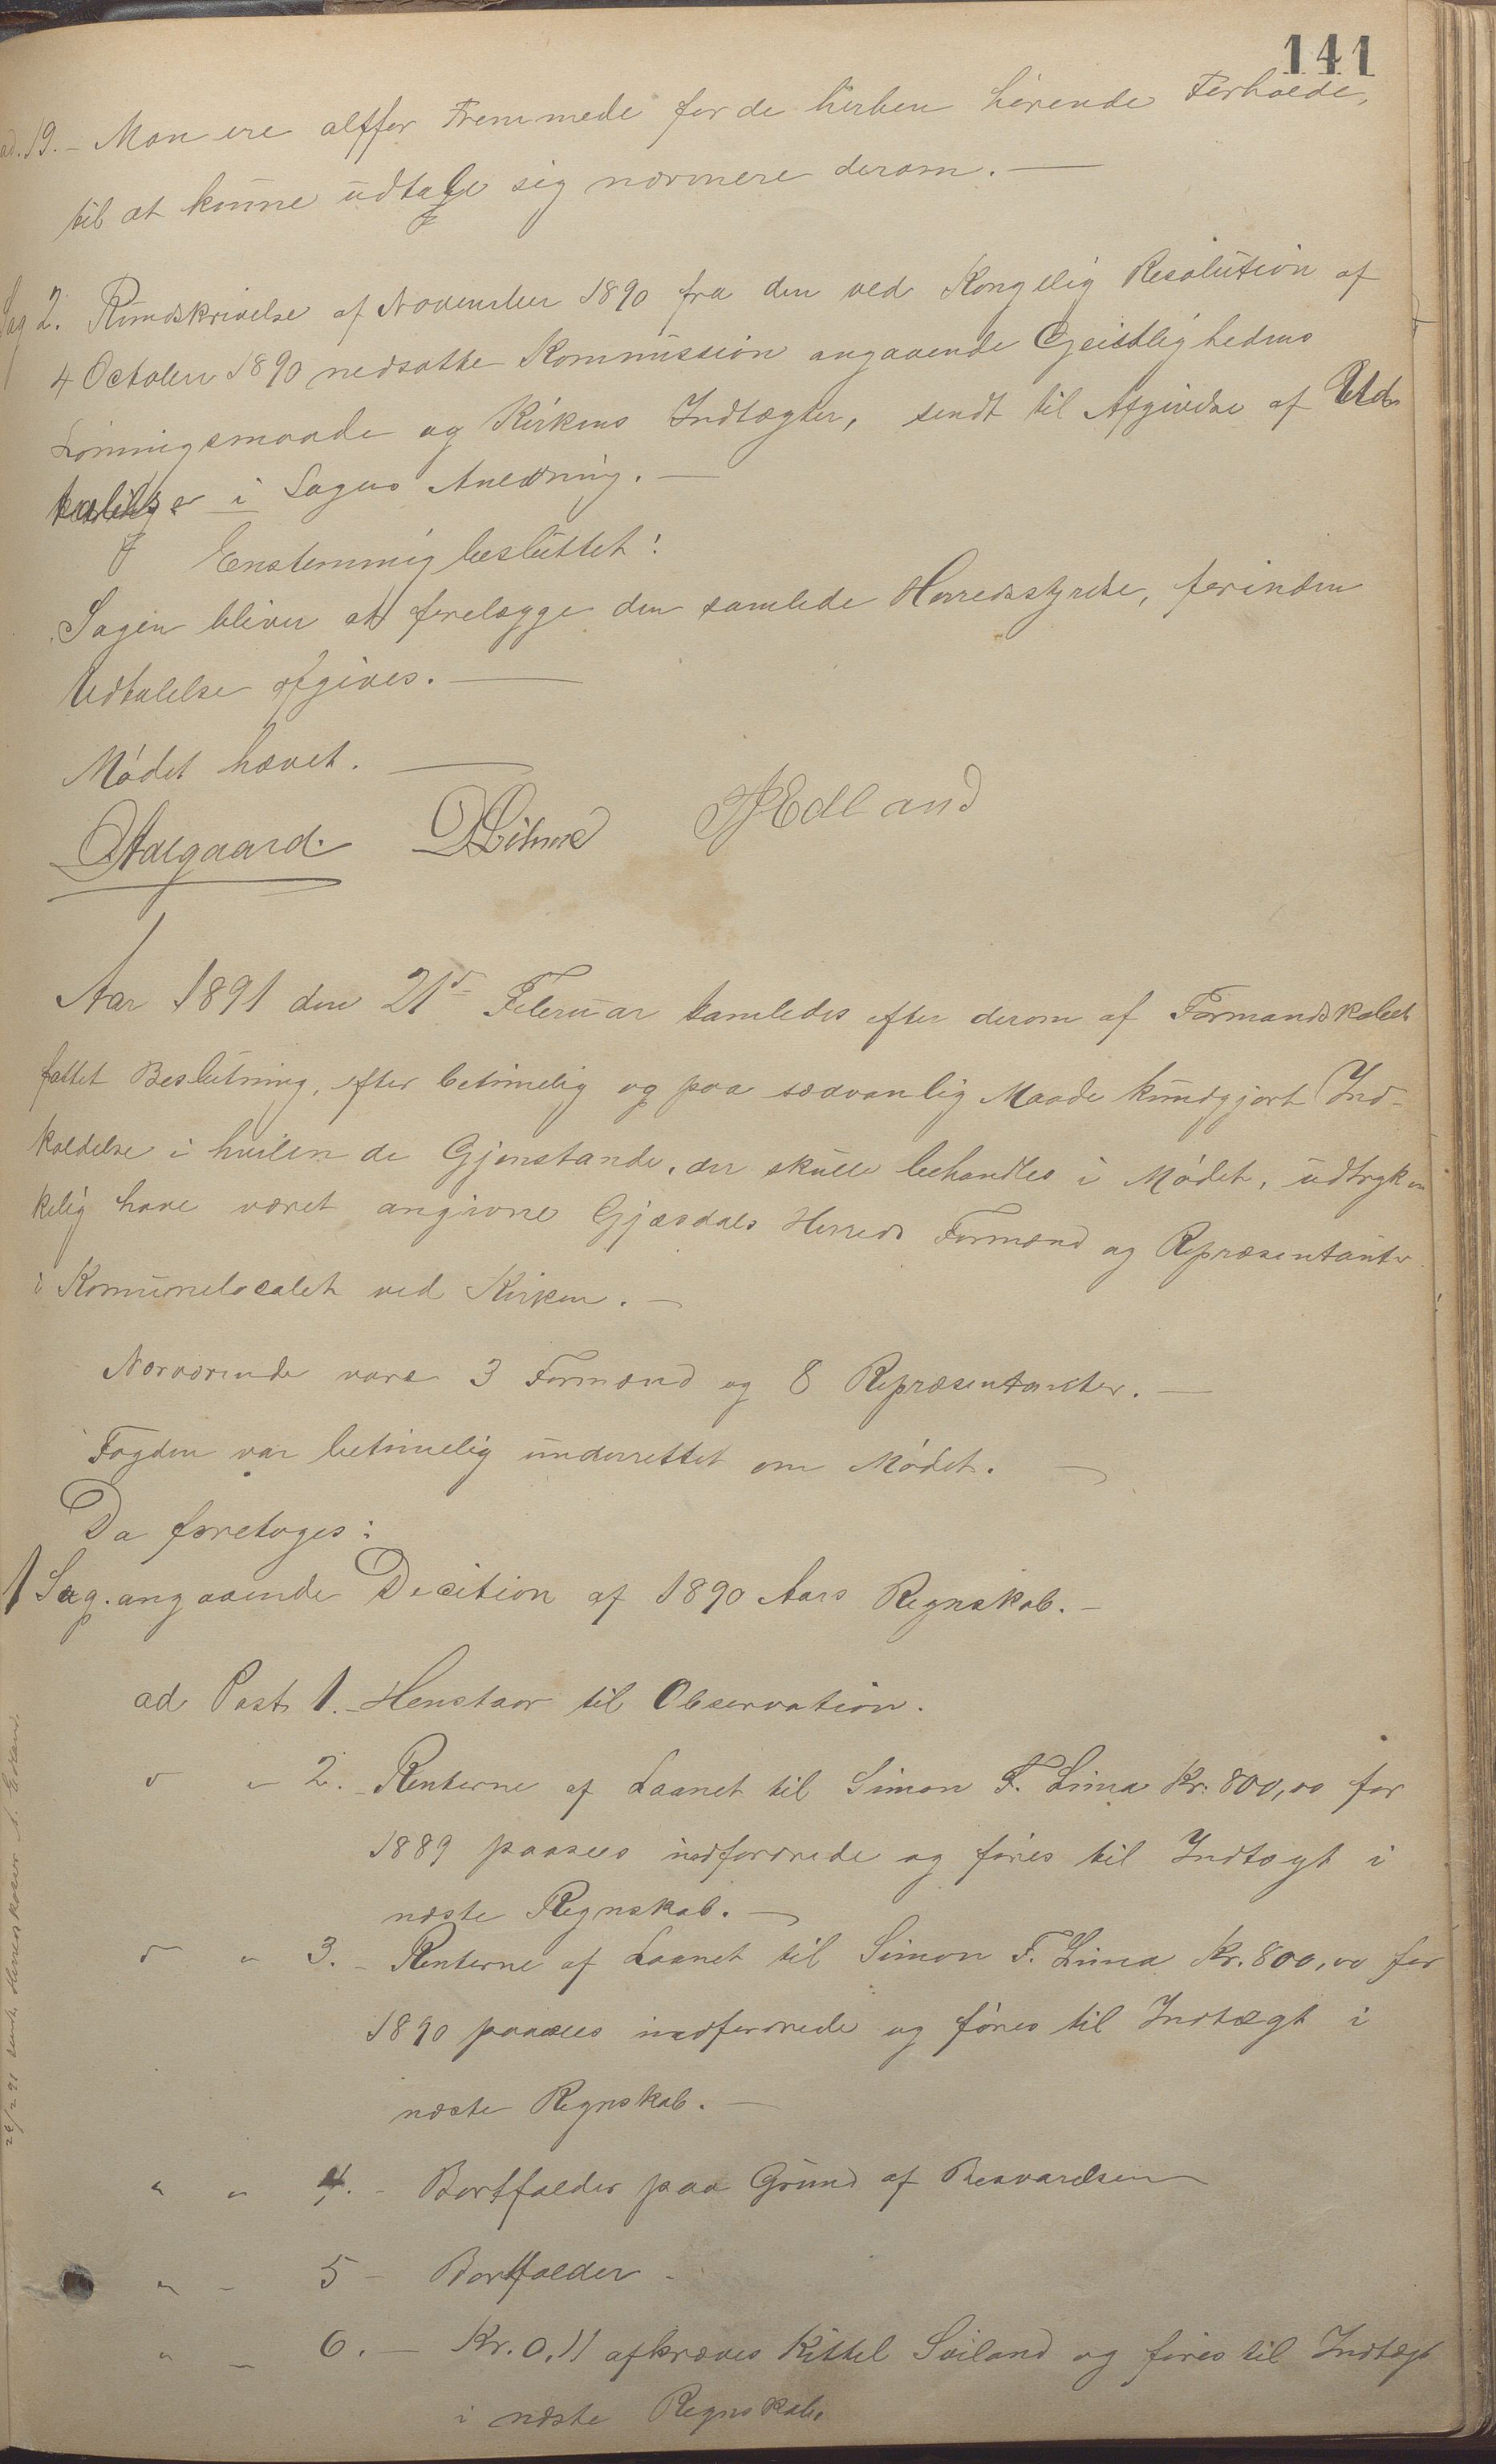 141
ad. 19. - Man ere altfor Fremmede for de herhen hørende Forholde,
til at kunne udtale sig nærmere derom. —
Sag 2. Rundskrivelse af November 1890 fra den ved Kongelig Resolution af
4 October 1890 nedsatte Kommission angaaende Geistlighedens
Lønningsmaade og Kirkens Indtægter, sendt til Afgivelse af
i Sagens Anledning. —
Enstemmig besluttet:
Sagen bliver at forelægge den samlede Herredsstyrelse, forinden
Udtalelse afgives. —
Mødet hævet. —
Aalgaard. Edland
Aar 1891 den 21de Februar samledes efter derom af Formandskabet
fattet Beslutning, efter betimelig og paa sædvanlig Maade kundgjort Ind-
kaldelse i hvilken de Gjenstande, der skulle behandles i Mødet, udtryk
kelig have været angivne Gjæsdals Herreds Formænd og Repræsentanter
i Komunelocalet ved Kirken. —
Nærværende vare 3 Formænd og 8 Repræsentanter. —
Fogden var betimelig underrettet om Mødet. —
Da foretoges:
1 Sag. angaaende Decition af 1890 Aars Regnskab. —
ad Post 1. - Henstaar til Observation.
" " 2. - Renterne af Laanet til Simon F. Lima Kr. 800,00 for
1889 paasees indfordrede og føres til Indtægt i
næste Regnskab. —
" " 3. - Renterne af Laanet til Simon F. Lima Kr. 800,00 for
1890 paasees indfordrede og føres til Indtægt i
næste Regnskab. —
" " 4. - Bortfalder paa Grund af Besvarelsen
" " 5 - Bortfalder -
" " 6. — Kr. 0,11 afkræves Kittel Sviland og føres til Indtægt
i næste Regnskab.